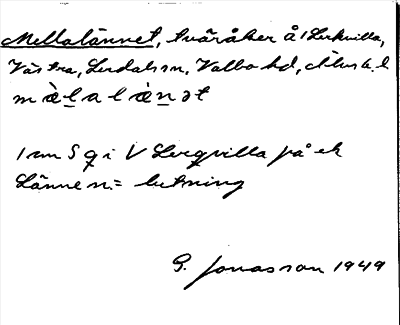 Mellalännet, tvåråker å 1 Lerkvilla,
Västra, Lerdals sn, Valbo hd, Älvsb. l
mèlalènət
1 cm S q i V Lerqvilla på ek
Länne n. = lutning
G. Jonasson 1949